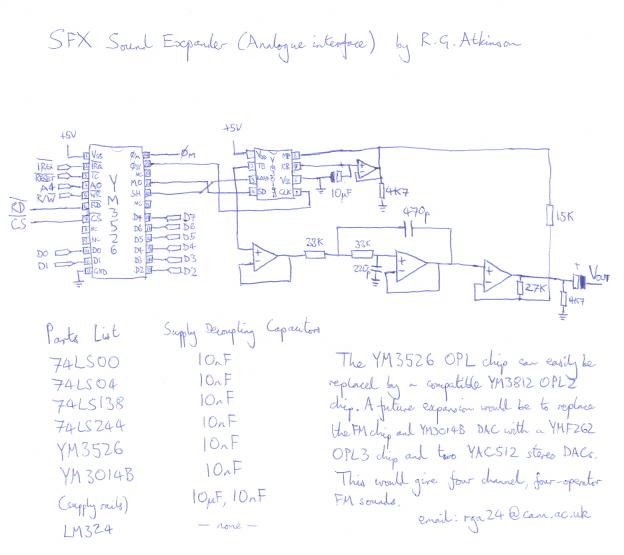 SFX Sound Expander (Analogue interface) by R.G. Atkinson
+5V
+5V
IRQ
RESET
A4
R/W
CS
D0
D1
Vcc
IRQ
IC
A0
WR
RD
CS
NC
NC
D0
D1
GND
YM3526
ØM
NC
MO
SH
NC
D7
D6
D5
D4
D3
D2
ØM
D7
D6
D5
D4
D3
D2
MP
CLK
SD
10µF
4K7
470p
15K
33K
220p
27K
4K7
+
VOUT
Parts List Supply Decoupling Capacitors
74LS00 10nF
74LS04 10nF
74LS138 10nF
74LS244 10nF
YM3526 10nF
YM3014B 10nF
(supply rails) 10µF, 10nF
LM324 — none —
The YM3526 OPL chip can easily be
replaced by a compatible YM3812 OPL2
chip. A future expansion would be to replace
the FM chip and YM3014B DAC with a YMF262
OPL3 chip and two YAC512 stereo DACs.
This would give four channel, four-operator
FM sounds.
email: rga24@cam.ac.uk